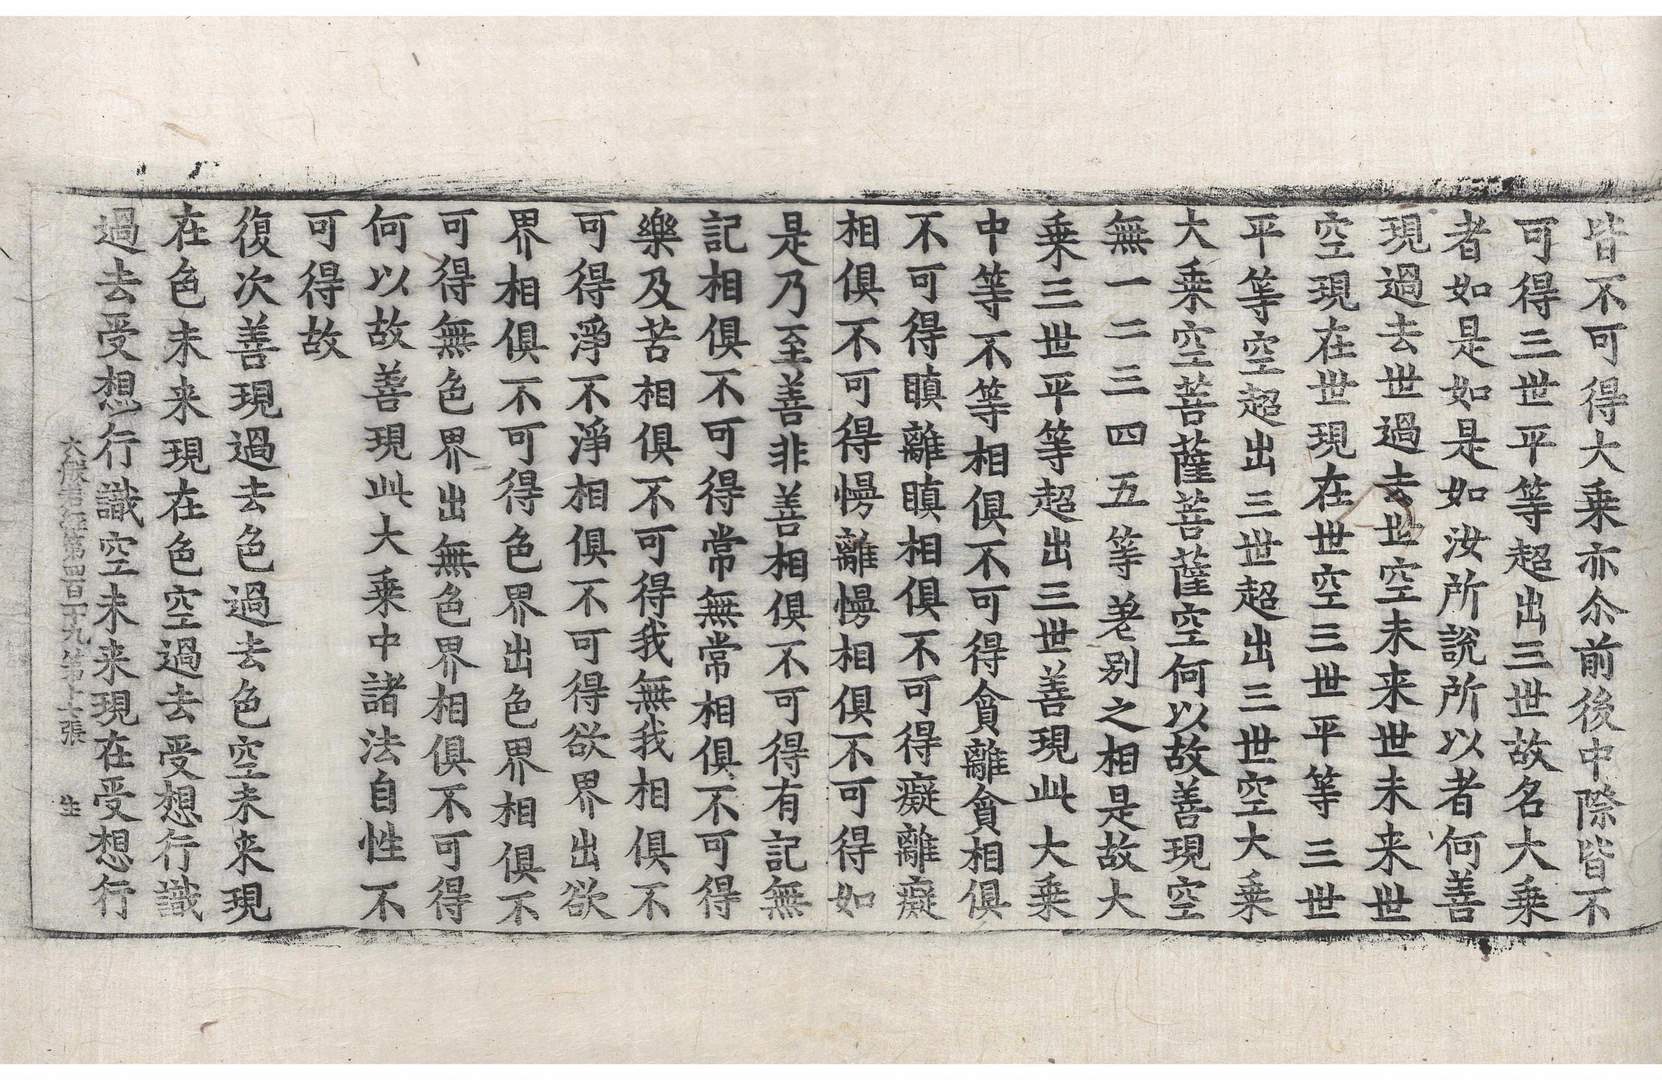 皆不可得大乗亦尒前後中際皆不
可得三世平等超出三世故名大乗
者如是如是如汝所說所以者何善
現過去世過去世空未来世未来世
空現在世現在世空三世平等三世
平等空超出三世超出三世空大乗
大乗空菩薩菩薩空何以故善現空
無一二三四五等差別之相是故大
乗三世平等超出三世善現此大乗
中等不等相俱不可得貪離貪相俱
不可得瞋離瞋相俱不可得癡離癡
相俱不可得慢離慢相俱不可得如
是乃至善非善相俱不可得有記無
記相俱不可得常無常相俱不可得
樂及苦相俱不可得我無我相俱不
可得淨不淨相俱不可得欲界出欲
界相俱不可得色界出色界相俱不
可得無色界出無色界相俱不可得
何以故善現此大乗中諸法自性不
可得故
復次善現過去色過去色空未来現
在色未来現在色空過去受想行識
過去受想行識空未来現在受想行
大般若經第四百十九第十七張 生